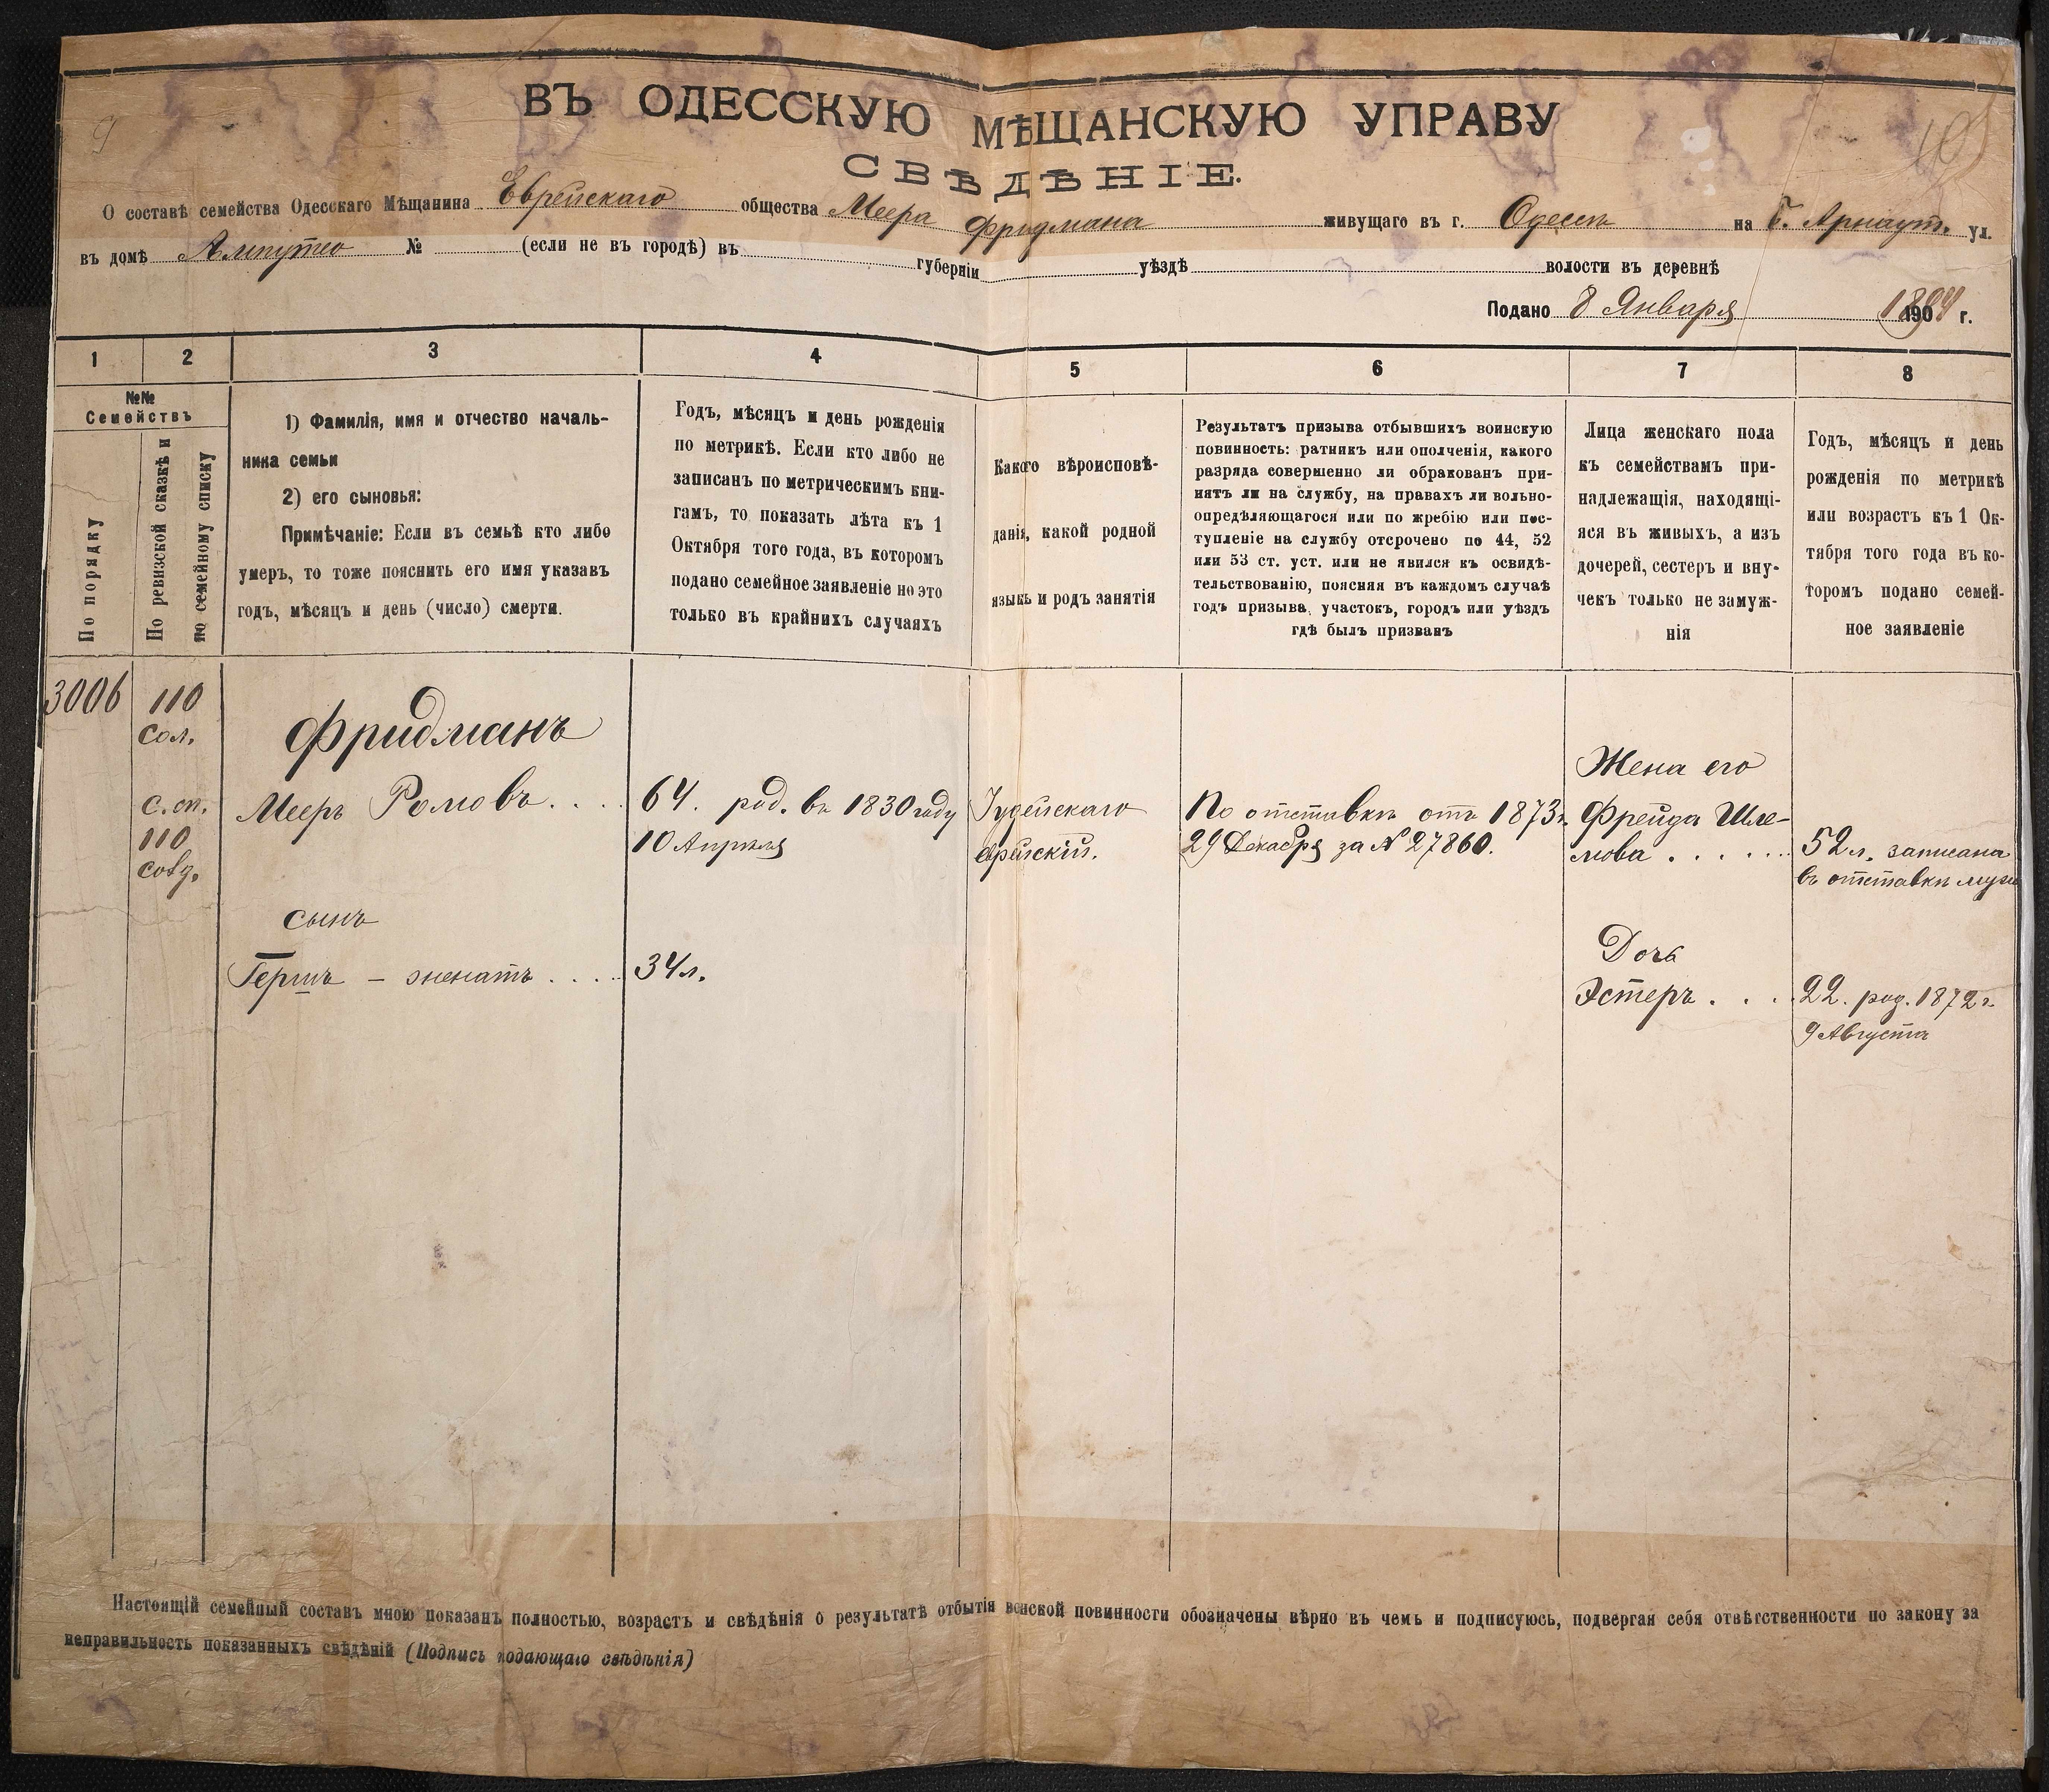 ВЪ ОДЕССКУЮ МѢЩАНСКУЮ УПРАВУ
СВѢДѢНІЕ.
О составѣ семейства Одесскаго Мѣщанина Еврейскаго общества Меера Фридмана живущаго въ г. Одессѣ на Б. Арнаут. ул.
въ домѣ № (если не въ городѣ) въ губерніи уѣздѣ волости въ деревнѣ
Подано 8 Января 1894 г.
1 2 3 4 5 6 7 8
№№
Семействъ
По порядку
По ревизской сказкѣ и
по семейному списку
1) Фамилія, имя и отчество началь-
ника семьи
2) его сыновья:
Примѣчаніе: Если въ семьѣ кто либо
умеръ, то тоже пояснить его имя указавъ
годъ, мѣсяцъ и день (число) смерти.
Годъ, мѣсяцъ и день рожденія
по метрикѣ. Если кто либо не
записанъ по метрическимъ кни-
гамъ, то показать лѣта къ 1
Октября того года, въ которомъ
подано семейное заявленіе но это
только въ крайнихъ случаяхъ
Какого вѣроисповѣ-
данія, какой родной
языкъ и родъ занятія
Результатъ призыва отбывшихъ воинскую
повинность: ратникъ или ополченія, какого
разряда совершенно ли обракованъ при-
нятъ ли на службу, на правахъ ли вольно-
опредѣляющагося или по жребію или пос-
тупленіе на службу отсрочено по 44, 52
или 53 ст. уст. или не явился къ освидѣ-
тельствованію, поясняя въ каждомъ случаѣ
годъ призыва, участокъ, городъ или уѣздъ
гдѣ былъ призванъ
Лица женскаго пола
къ семействамъ при-
надлежащія, находящі-
яся въ живыхъ, а изъ
дочерей, сестеръ и вну-
чекъ только не замуж-
нія
Годъ, мѣсяцъ и день
рожденія по метрикѣ
или возрастъ къ 1 Ок-
тября того года въ ко-
торомъ подано семей-
ное заявленіе
3006
110
сол.
с. сп.
110
Фридманъ
Мееръ Ромовъ. . .
сынъ
Гершъ – женатъ . . . .
64. род. въ 1830 году
10 Апрѣля
34 л.
Іудейскаго
еврейскій.
По отставкѣ отъ 1873 г.
29 Декабря за № 27860.
Жена его
Фрейда Шле-
мова . . . . . .
Дочь
Эстеръ . . .
52 л. записана
въ отставкѣ мужа
22. род. 1872 г.
9 Августа
Настоящій семейный составъ мною показанъ полностью, возрастъ и свѣдѣнія о результатѣ отбытія воинской повинности обозначены вѣрно въ чемъ и подписуюсь, подвергая себя отвѣтственности по закону за
неправильность показанныхъ свѣдѣній (Подпись подающаго свѣдѣнія)